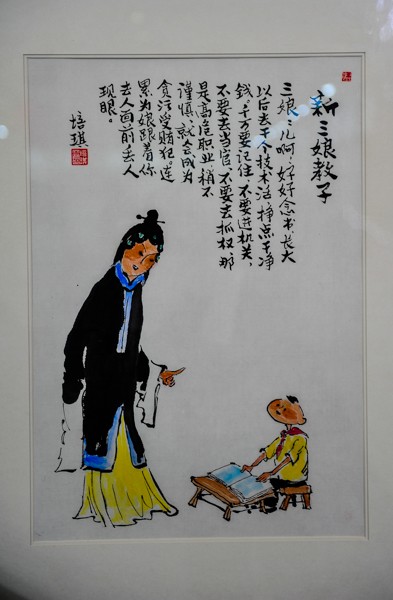 新三娘教子
三娘：儿啊，好好念书，长大
以后去干个技术活，挣点干净
钱。千万要记住，不要进机关，
不要去当官，不要去抓权，那
是高危职业，稍不
谨慎，就会成为
贪污受贿犯。连
累为娘跟着你
去人面前丢人
现眼。
培琪